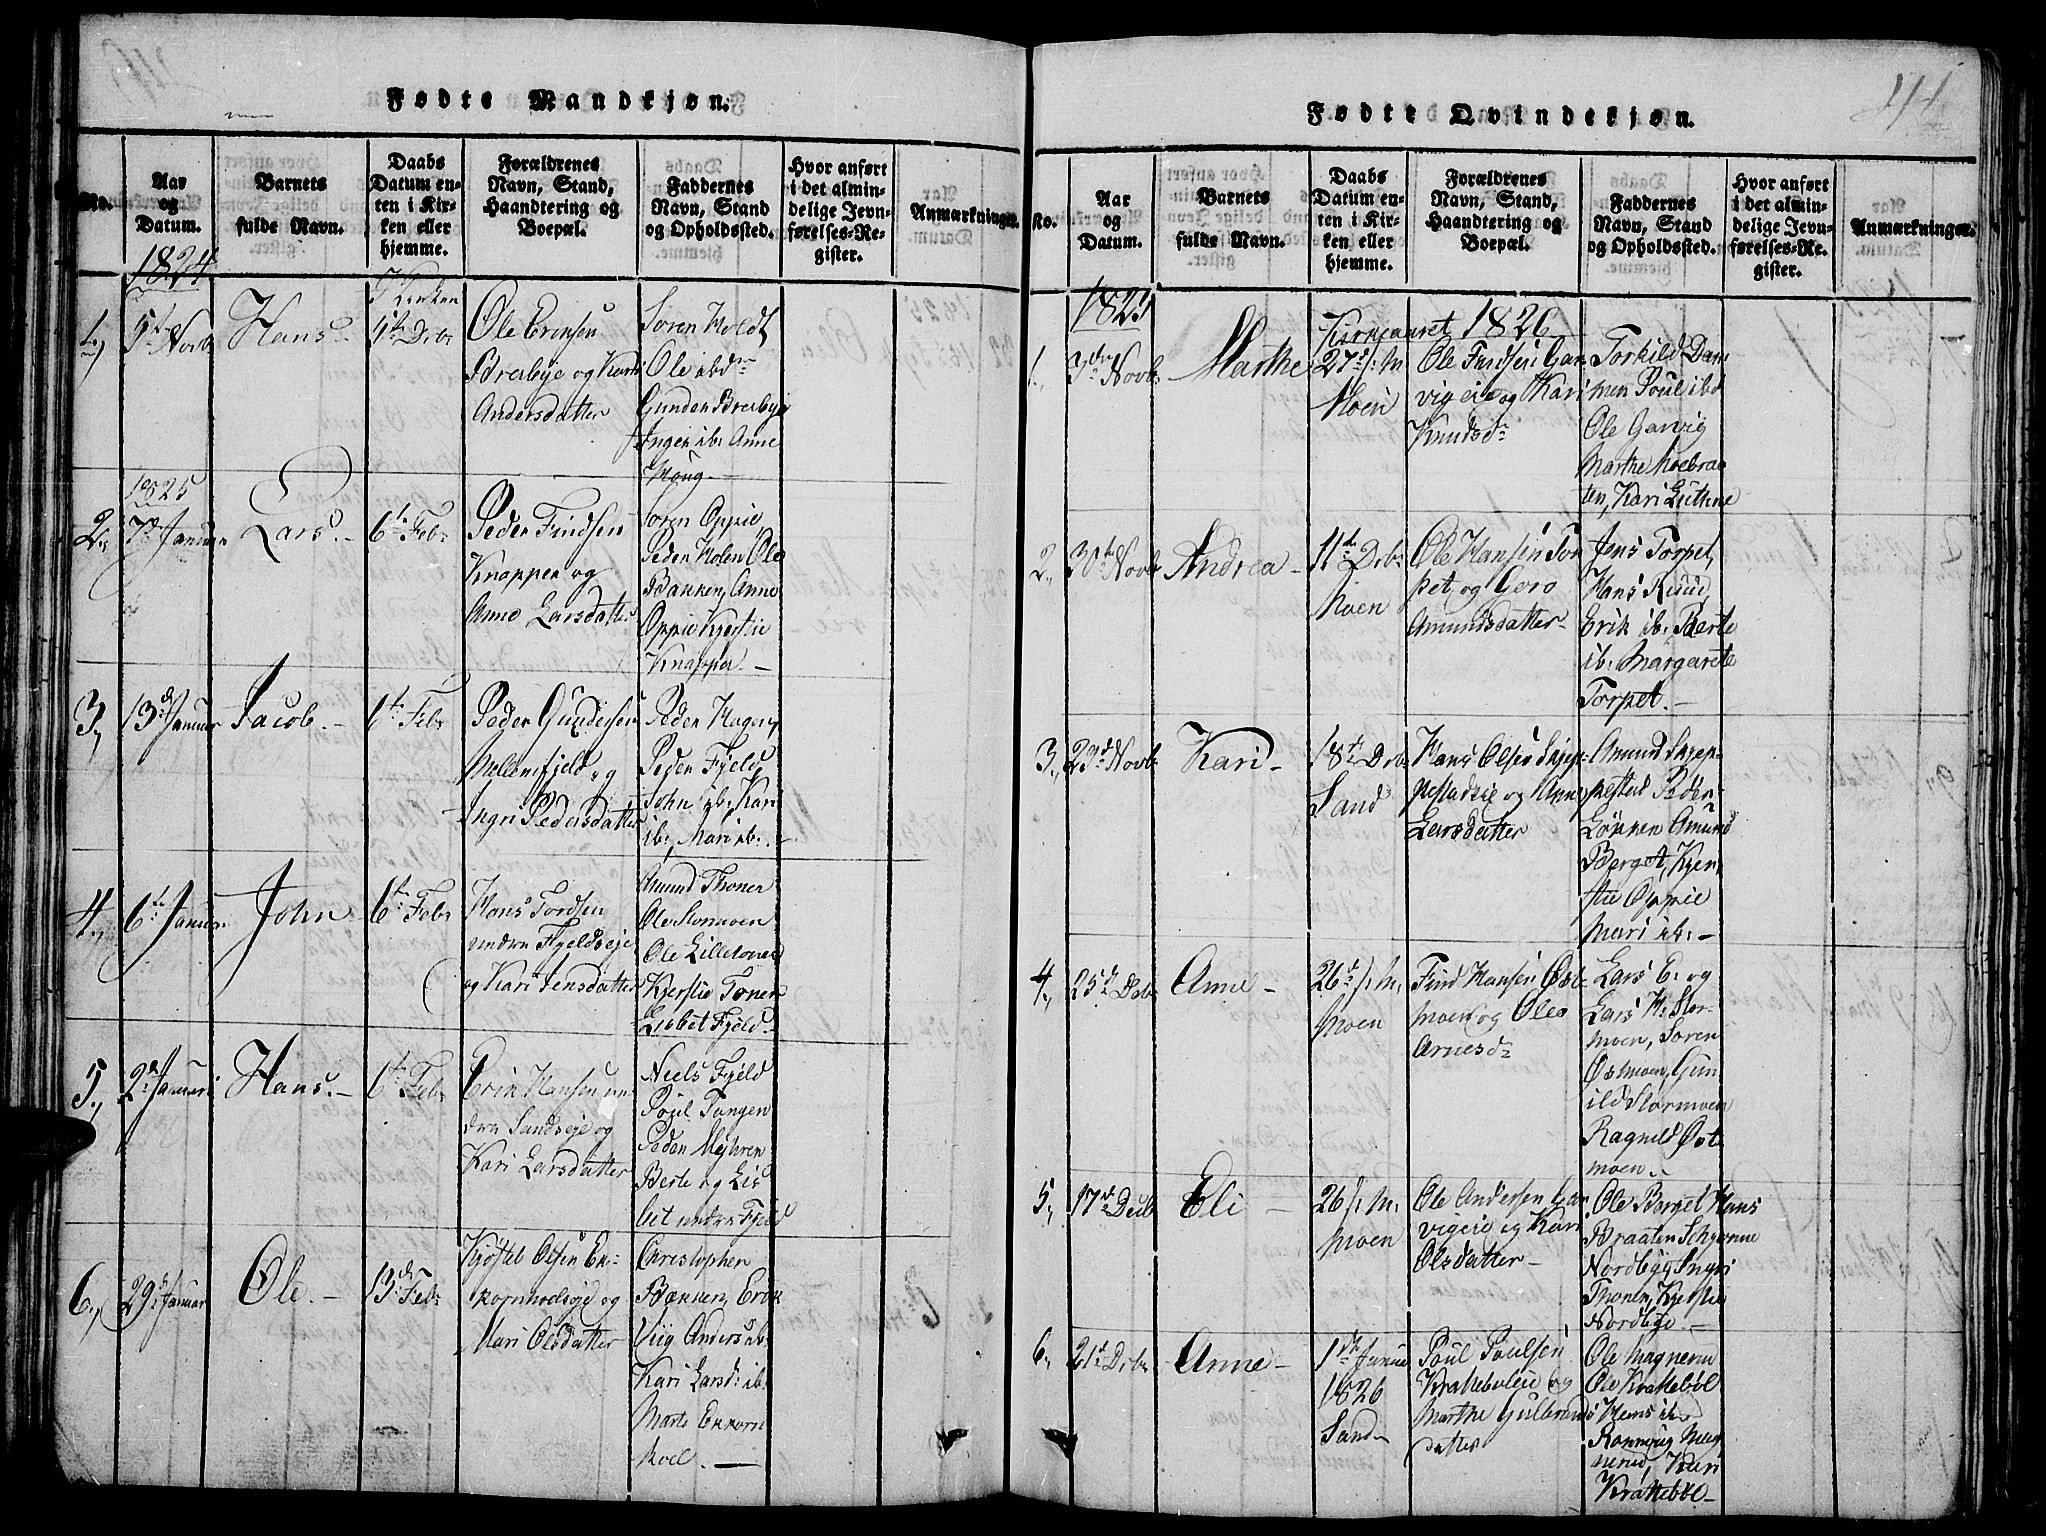 Fødte Mandkjøn.
No.
Aar
og
Datum.
Barnets
fulde Navn.
Daabs
Datum en-
ten i Kir-
ken eller
hjemme.
Forældrenes
Navn, Stand,
Haandtering og
Boepæl.
Faddernes
Navn, Stand
og Opholdssted.
Hvor anført
i det almin-
delige Jevn-
førelses-Re-
gister.
Anmærkninger.
1824
1.,
5te Novb
Hans.-
I Kirken
5te Decbr
Ole Erensen
Breebye og Kari
Andersdatter
Soren Holdt
Ole ibdm
Gunder Breebye
Inger ib: Anne
Houg.
1825
2.,
7de Januar
Lars.-
6te Febr
Peder Findsen
Knapper og
Anne Larsdatter
Soren Oppie,
Peder Holen Ole
Bakken, Anne
Oppie Kjerstie
Knapper.-
3.,
13de Januar
Jacob.-
6te Febr
Peder Gundersen
Mellemfjeld og
Ingri Pedersdatter
Peder Hagen,
Peder Fjeld
John ib: Kari
ib:, Mari ib:.-
4.,
6te Januar
John
6te Febr
Hans Tordsen
nedre Fjeldseje
og Kari Jensdatter
Amund Thoner
Ole Stormoen
Ole Lilletoner
Kjerstie Toner
Lisbet Fjeld.-
5.,
2de Januari
Hans.-
6te Febr
Erik Hansen ne-
dre Sandseje og
Kari Larsdatter
Niels Fjeld
Poul Tangen
Peder Mejhren
Berte og Lis
bet nedre Fjeld
6.,
29de Januar
Ole.-
13de Febr
Kjøstel Olsen Ek-
kornhodseje og
Mari Olsdatter
Christopher
Bakken, Erik
Viig Anders ib:
Kari Larsd: ib:
Marte Ekkorn
hoel.-
Fødte Qvindekjøn.
No.
Aar
og
Datum.
Barnets
fulde Navn.
Daabs
Datum en-
ten i Kir-
ken eller
hjemme.
Forældrenes
Navn, Stand,
Haandtering og
Boepæl.
Faddernes
Navn, Stand
og Opholdssted.
Hvor anført
i det almin-
delige Jevn-
førelses-Re-
gister.
Anmærkninger.
1825
Kirkeaaret 1826
1.,
3de Novb:
Marthe
27de s: M
Moen
Ole Findsen Gar
vigeie og Kari
Knudsdr
Torkild Dam
men Poul ibd
Ole Garvig
Marthe Moebraa
ten, Kari Luthne
2.,
30te Novb
Andrea-
11te Dcbr
Moen
Ole Hansen Tor
pet og Goro
Amundsdatter-
Jens Torpet,
Hans Ruud,
Erik ib: Berte
ib: Margarete
Torpet.-
3.,
29de Novb:
Kari-
18te Dcbr
Sand
Hans Olsen Skjep-
pestadeie og Anne
Larsdatter
Amund Skjep-
pestad Peder-
Løkken Amund
Berget, Kjer-
stie Oppie
Mari ib:-
4.,
25de Dcbr
Anne-
26de s: M:
Moen
Find Hansen Øst-
moen og Olea
Arnesdr
Lars E: og
Lars H: Stor-
moen, Soren
Østmoen, Gun
ild Stormoen
Ragnild Øst
moen.-
5.,
17de Decb
Eli-
26 s: M:
Moen
Ole Andersen Gar
vigeie og Kari
Olsdatter-
Ole Berget Hans
Braaten
Nordbye Ingri
Thoner, Kjerstie
Nordbye-
6.,
21de Dcbr
Anne-
1ste Januar
1826
Sand
Poul Poulsen
Krattebøleie og
Marthe Gulbrands
datter
Ole Magnerud
Ole Krattebøl
Hans ib:
Ronnaug Mag
nerud, Kari
Krattebøl-